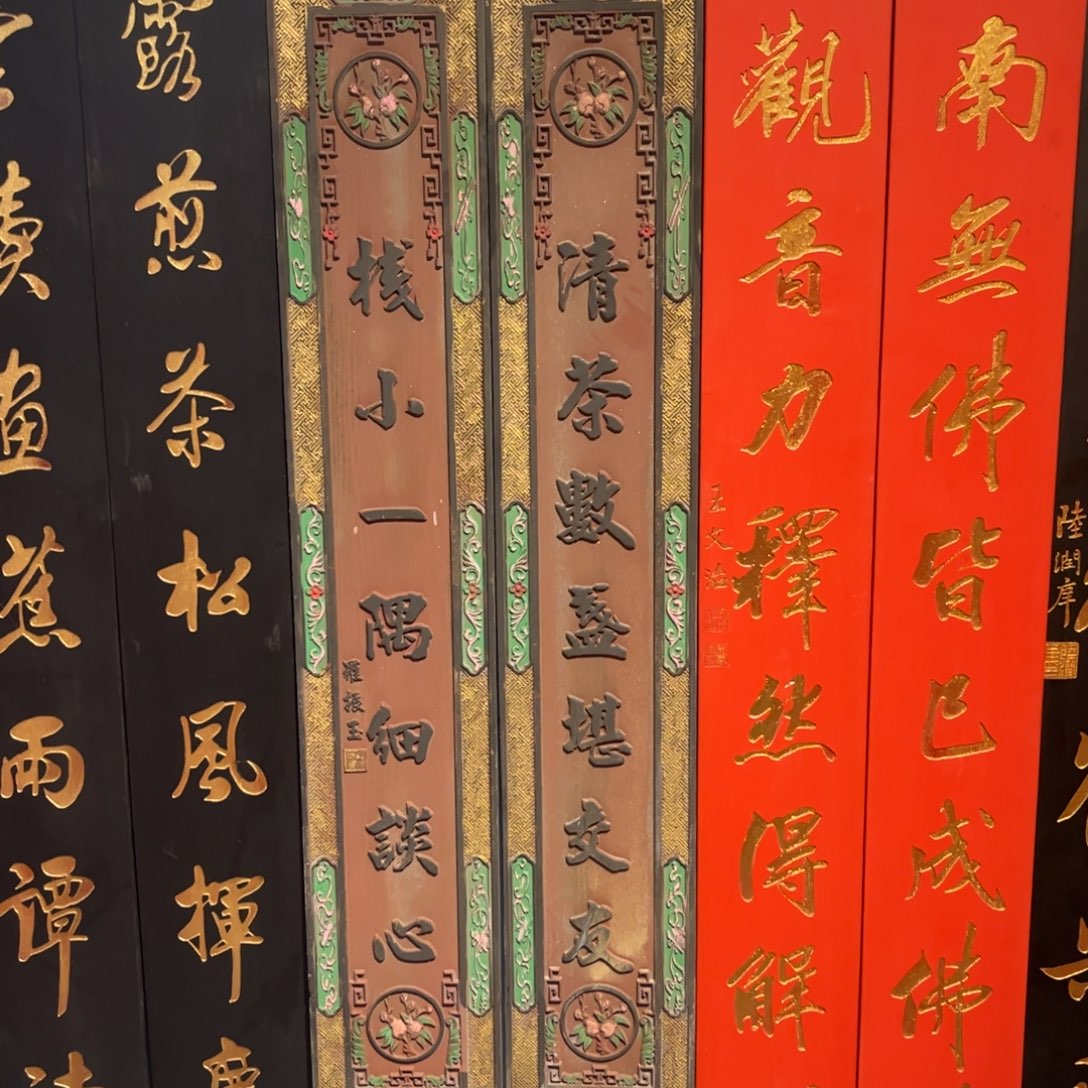 南無佛皆已成佛
觀音力釋然得解
王文治
清茶數盞堪交友
栈小一隅細談心
羅振玉
露煎茶松風揮麈
讀畫蕉雨譚詩
陸潤庠